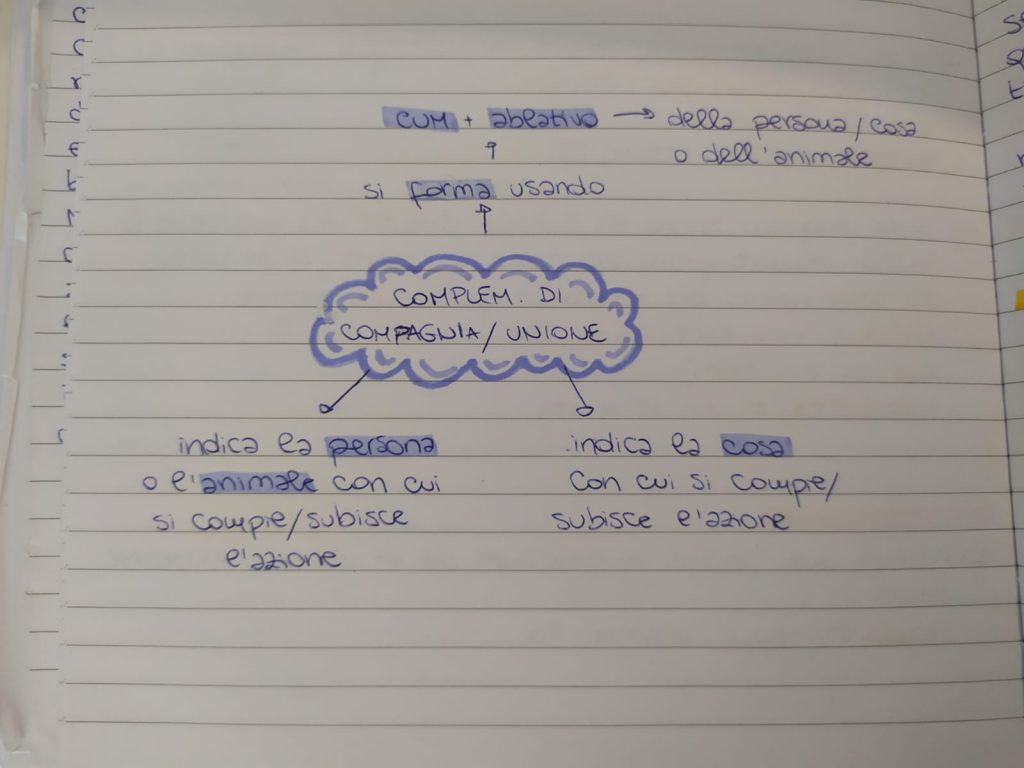 CUM + ablativo → della persona/cosa
o dell'animale
si forma usando
COMPLEM. DI
COMPAGNIA/UNIONE
indica la persona
o l'animale con cui
si compie/subisce
l'azione
indica la cosa
con cui si compie/
subisce l'azione